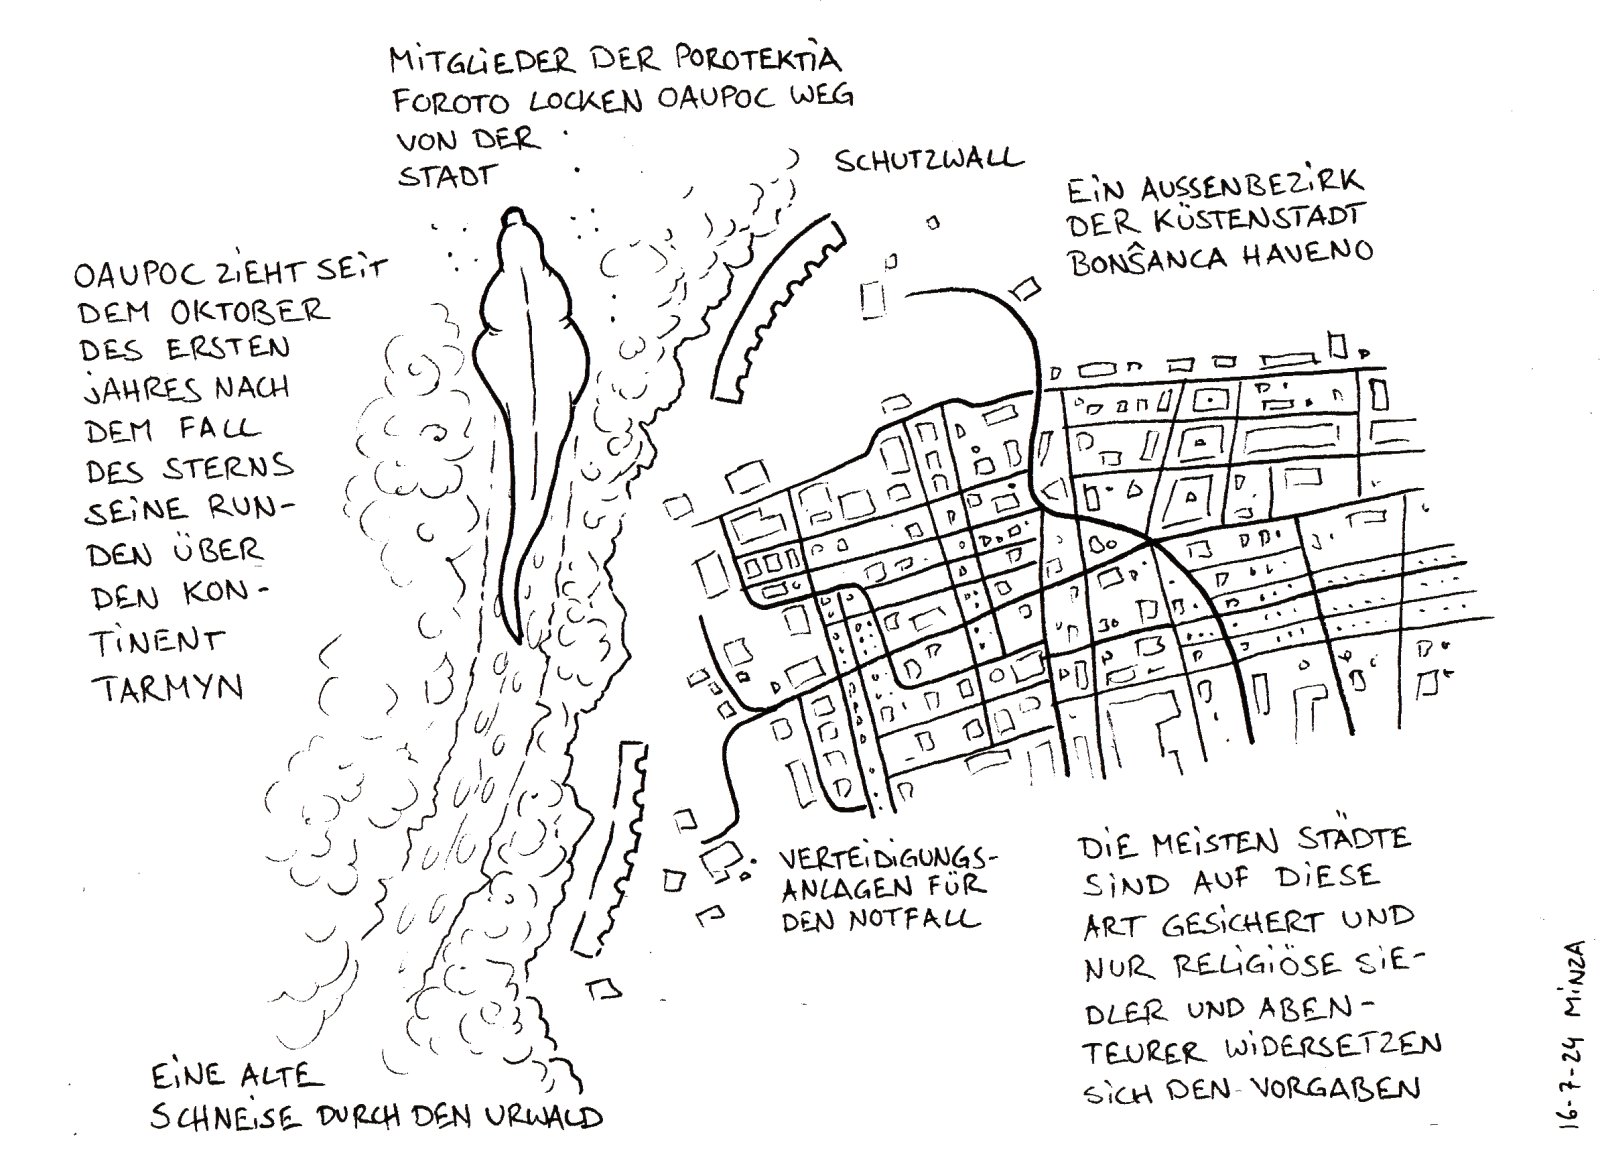 MITGLIEDER DER POROTEKTIA
FOROTO LOCKEN OAUPOC WEG
VON DER
STADT
SCHUTZWALL
EIN AUSSENBEZIRK
DER KÜSTENSTADT
BONŜANCA HAVENO
OAUPOC ZIEHT SEIT
DEM OKTOBER
DES ERSTEN
JAHRES NACH
DEM FALL
DES STERNS
SEINE RUN-
DEN ÜBER
DEN KON-
TINENT
TARMYN
VERTEIDIGUNGS-
ANLAGEN FÜR
DEN NOTFALL
DIE MEISTEN STÄDTE
SIND AUF DIESE
ART GESICHERT UND
NUR RELIGIÖSE SIE-
DLER UND ABEN-
TEURER WIDERSETZEN
SICH DEN VORGABEN
EINE ALTE
SCHNEISE DURCH DEN URWALD
16-7-24 MINZA